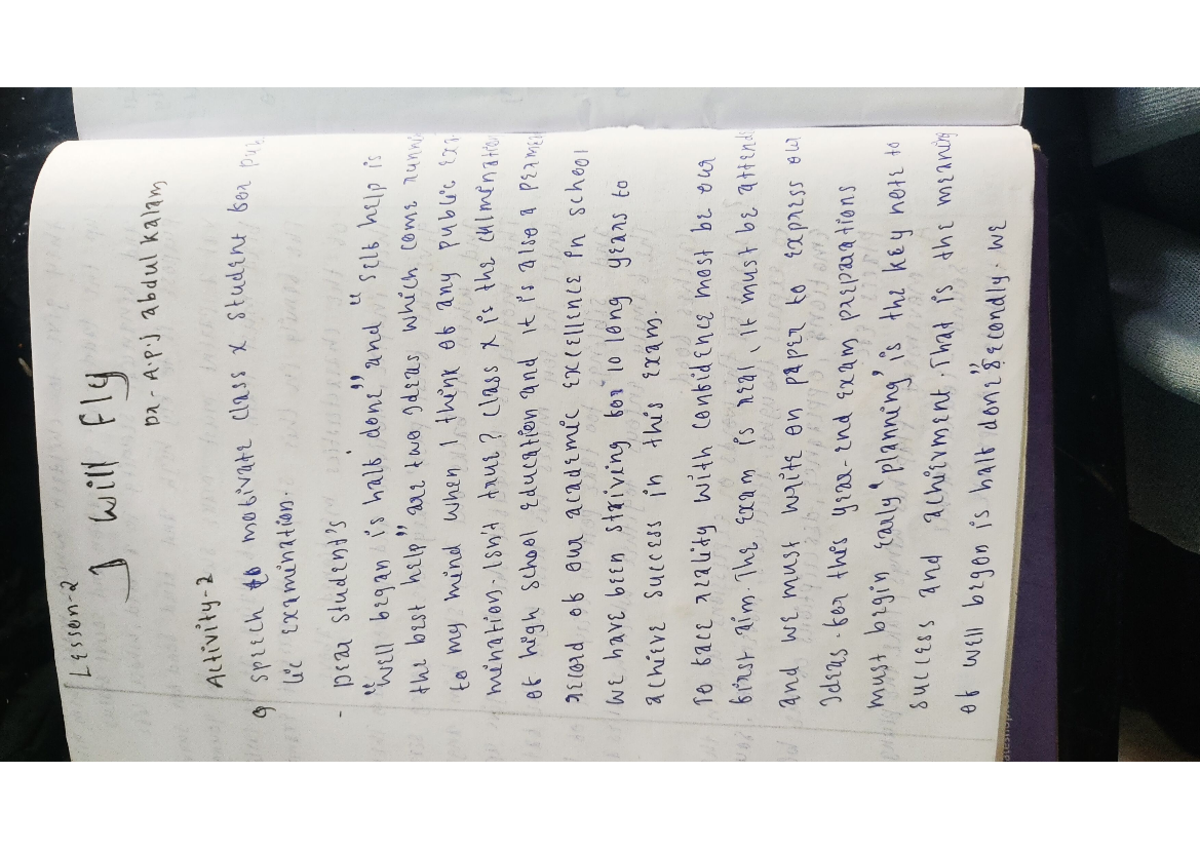 Lesson-2
I will fly
Dr - A.P.J abdul kalam
Activity-2
9 speech to motivate class x student for pub
lic examination.
- Dear student's
"well began is half done" and "self help is
the best help" are two Ideas which come runni
to my mind when I think of any public exa-
mination. Isn't true? class x is the culmination
of high school education and it is also a permen
record of our academic excellence in school
we have been striving for 10 long years to
achieve success in this exam.
To face reality with confidence most be our
first aim. The exam is real, it must be attend
and we must write on paper to express our
Ideas. for this year-end exam preparations
must begin early 'planning' is the key note to
success and achievment. That is the meaning
of well began is half done". secondly. we